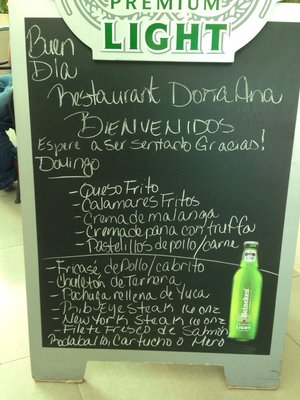 PREMIUM
LIGHT
Buen
Día
Restaurant Doña Ana
BIENVENIDOS
Espere a ser sentado Gracias!
Domingo
- Queso Frito
- Calamares Fritos
- Crema de malanga
- Crema de pana con truffa
- Pastelillos de pollo/carne
- Fricasé de Pollo/cabrito
- Chuletón de Ternera
- Pechuga rellena de Yuca
- Rib-Eye Steak 16 onz
- New York Steak 16 onz
- Filete Fresco de Salmón
Rodaballo, Cartucho o Mero
Heineken
LIGHT